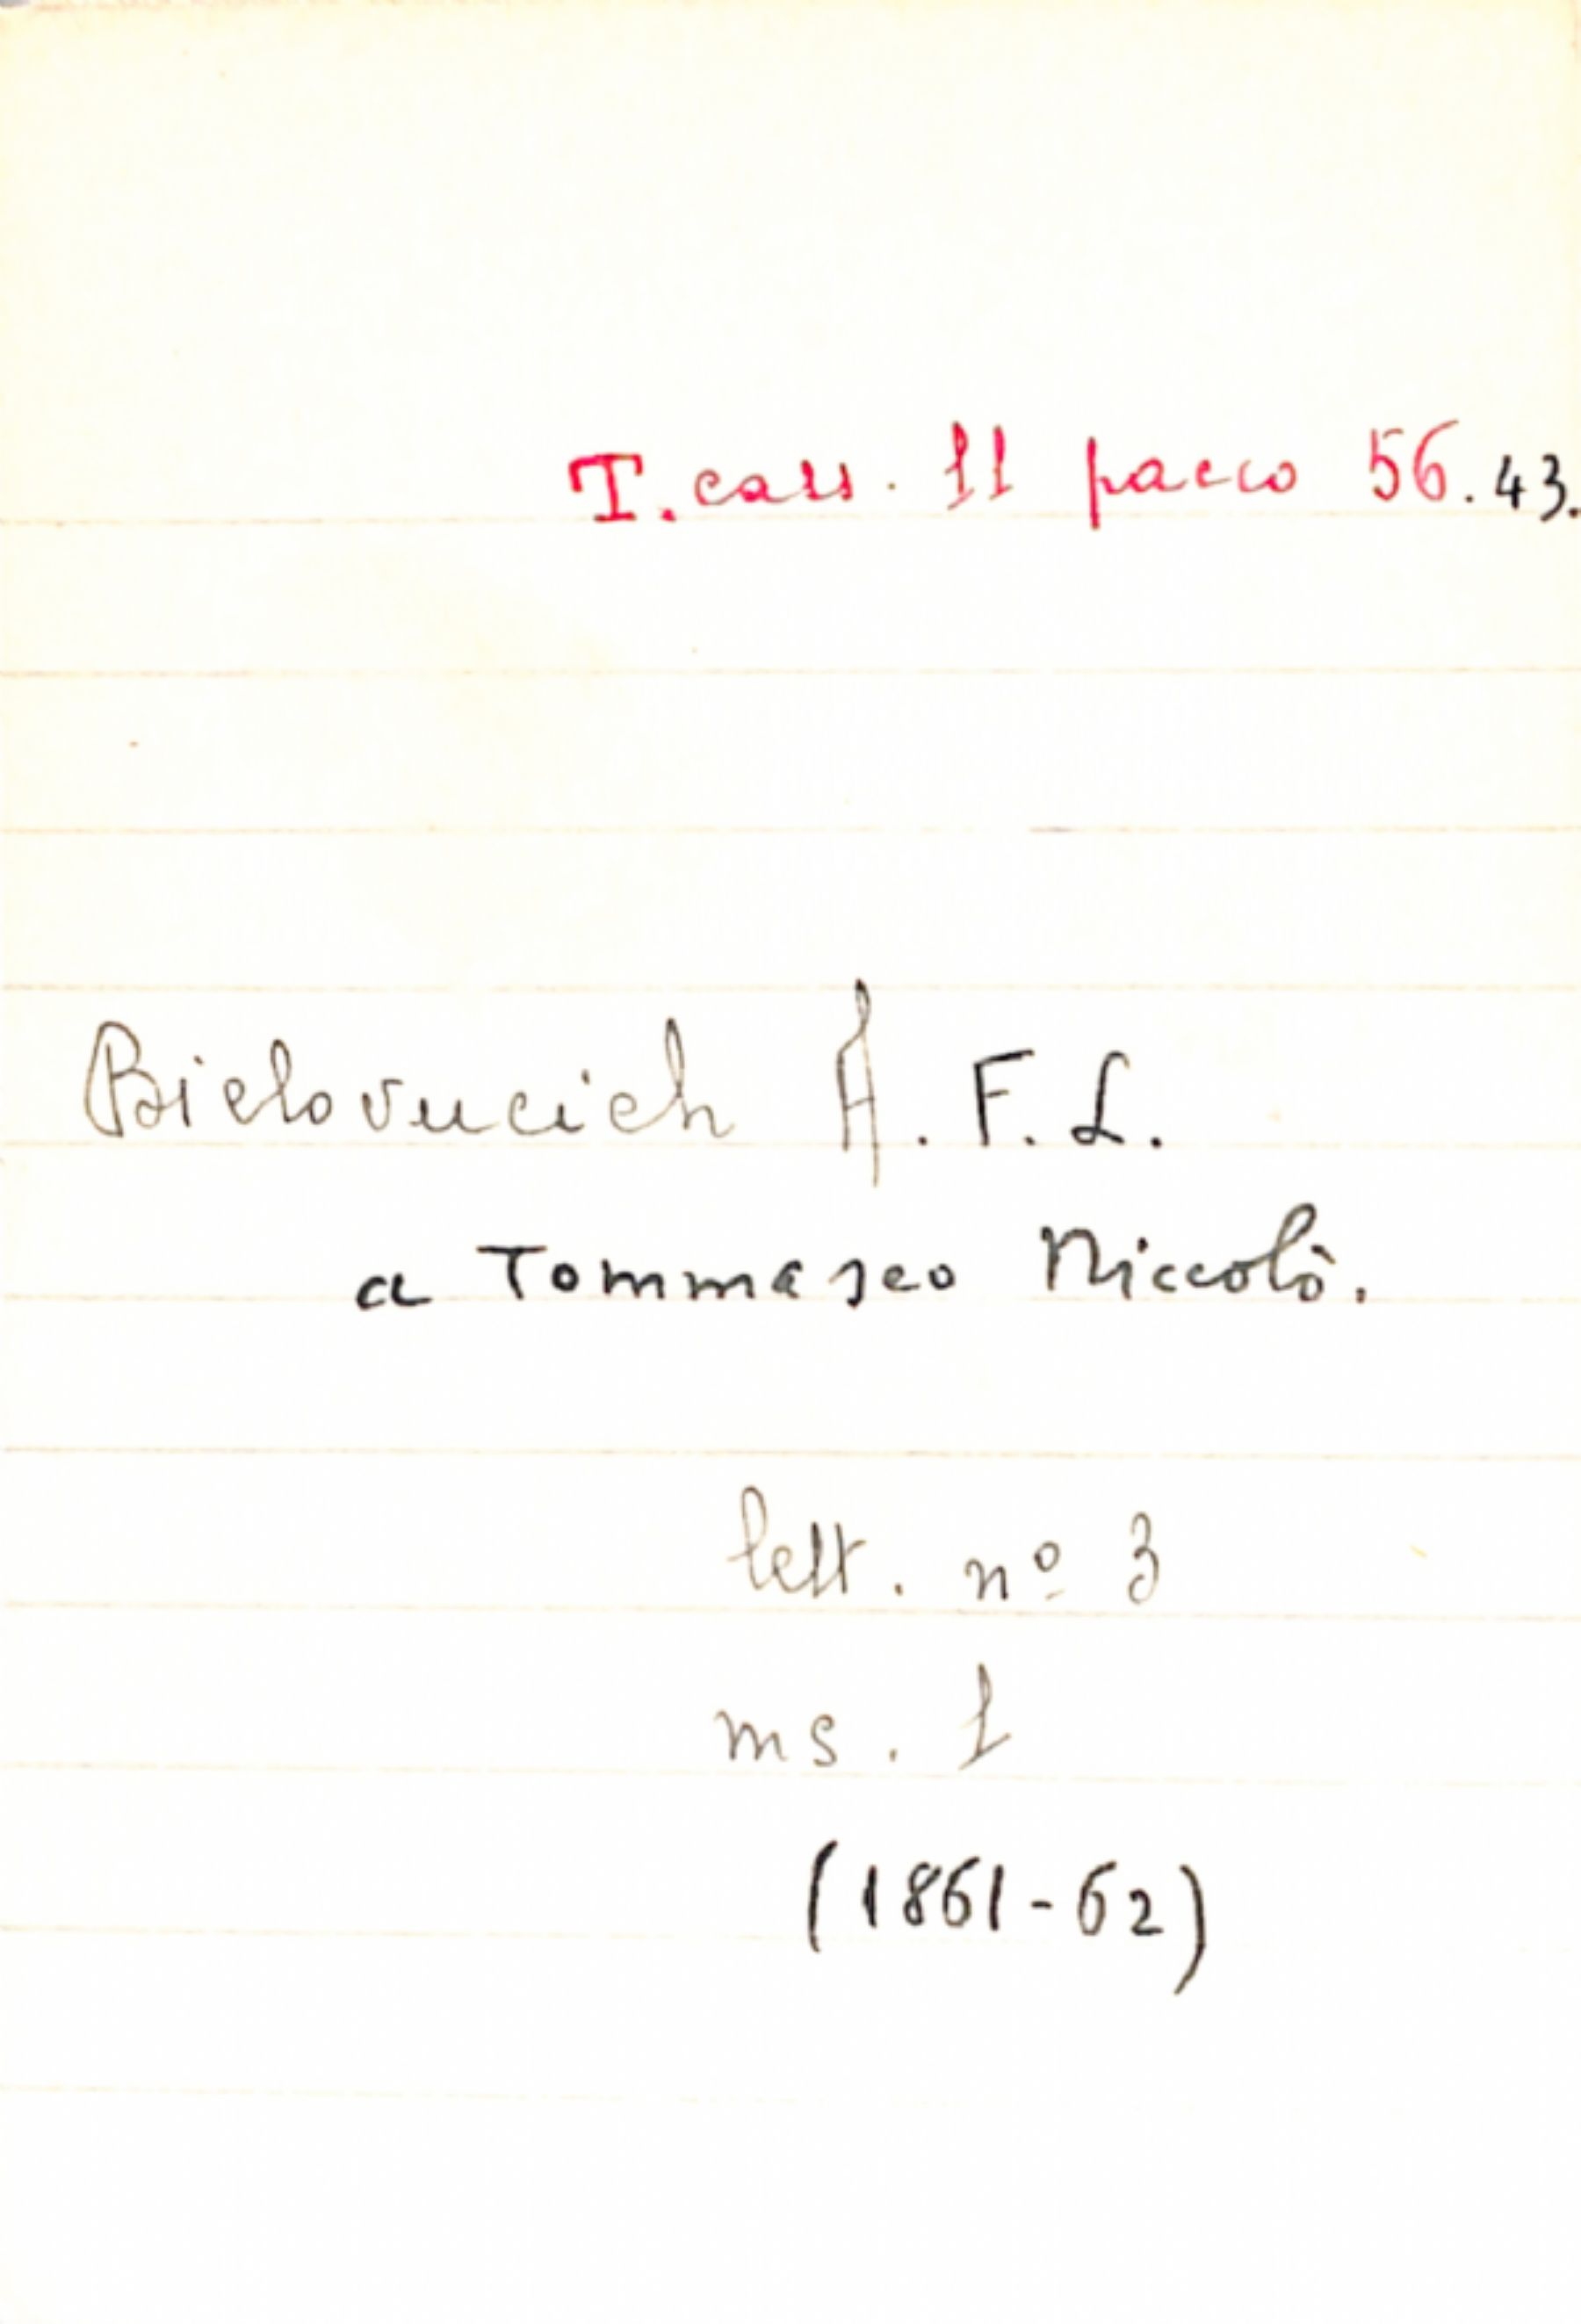 T. cass. 11 pacco 56.43.
Bielovucich A. F. L.
a Tommaseo Niccolò.
lett. nº 3
ms. 1
(1861-62)